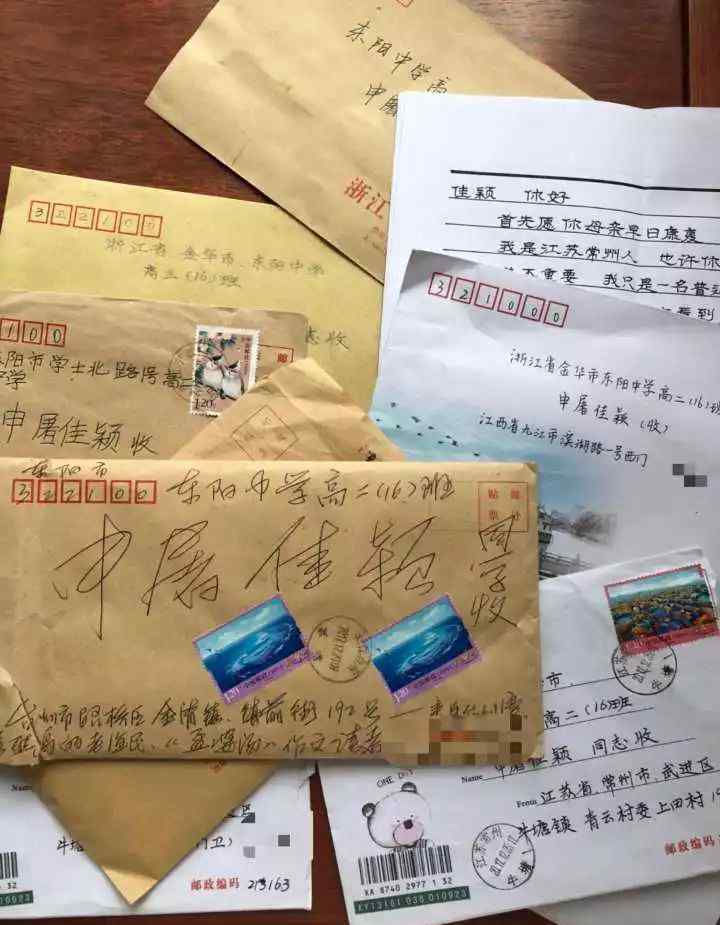 东阳中学高
申屠
浙江
佳颖 你好
首先愿你母亲早日康复
我是江苏常州人 也许你
不重要 我只是一名普
看到
322100
浙江省 金华市 东阳中学
高二（16）班
志收
321000
浙江省金华市东阳中学高二（16）班
申屠佳颖（收）
江西省九江市滨湖路一号西门
100
邮
阳市学士北路 号高二
中学
申屠佳颖 收
1.20
东阳市
322100
东阳中学高二（16）班
贴 邮
票 处
申屠佳颖 同学收
1.20
1.20
中国邮政
金清镇
市
高二（16）班
Name
申屠佳颖 同志收
From 江苏省 常州市 武进区
牛塘镇 青云村委 上田村
邮政编码
ONE DAY
江苏常州
牛塘
XA 8740 2977 1 32
XY13101 036 010923
牛塘
邮政编码 213163
1 32
010923